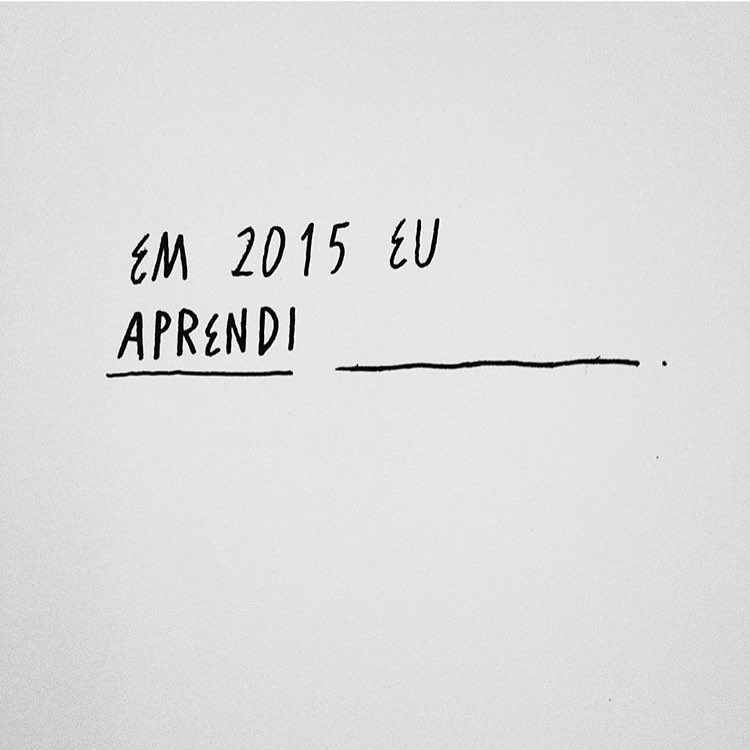 EM 2015 EU
APRENDI ________.